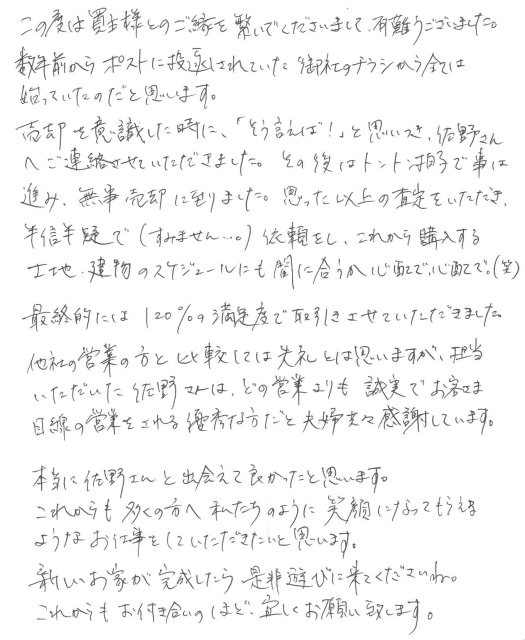 この度は買主様とのご縁を繋いでくださいまして、有難うございました。
数年前からポストに投函されていた御社のチラシから全ては
始っていたのだと思います。
売却を意識した時に、「そう言えば!」と思いつき、佐野さん
へご連絡させていただきました。その後はトントン拍子で事は
進み、無事売却に至りました。思った以上の査定をいただき、
半信半疑で(すみません…。)依頼をし、これから購入する
土地・建物のスケジュールにも間に合うか心配で、心配で。(笑)
最終的には120%の満足度で取引きさせていただきました。
他社の営業の方と比較しては失礼とは思いますが、担当
いただいた佐野さんは、どの営業よりも誠実でお客さま
目線の営業をされる優秀な方だと夫婦共々感謝しています。
本当に佐野さんと出会えて良かったと思います。
これからも多くの方へ私たちのように笑顔になってもらえる
ようなお仕事をしていただきたいと思います。
新しいお家が完成したら是非遊びに来てくださいね。
これからもお付き合いのほど、宜しくお願い致します。